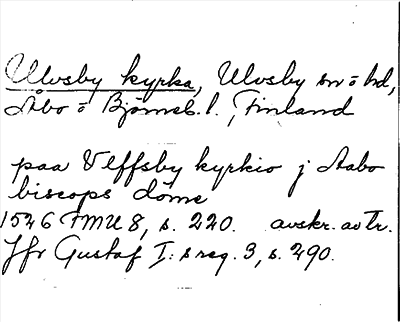 Ulvsby kyrka, Ulvsby sn o hd,
Åbo o Björneb. l. Finland
paa Vlffsby kyrkio j Aabo
biscops döme
1526 FMU 8, s. 220. avskr. av Tr.
Jfr Gustaf I:s reg. 3, s. 290.